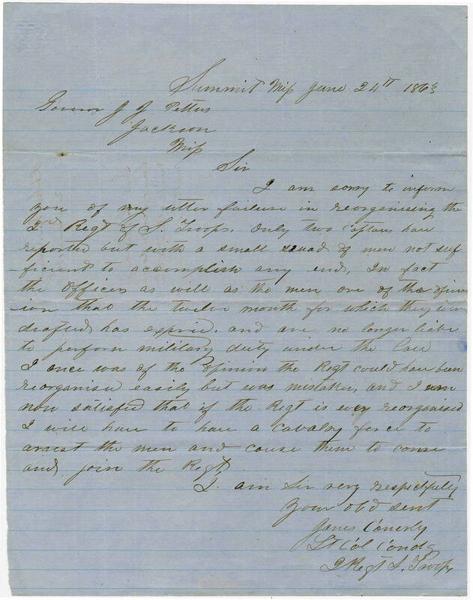 Summit Mip June 24th 1863
Govenor J J Pettus
Jackson
Mip
Sir
I am sorry to inform
you of my utter failure in reorganising the
2d Regt of S. Troops. Only two Captains have
reported but with a small squad of men not suf-
ficient to acomplish any end. In fact
the Officers as well as the men are of the opin-
ion that the twelve month for which they were
drafted has expired. and are no longer liable
to perform military duty under the law
I once was of the opinion the Regt could have been
reorganised easily but was mistaken, and I am
now satisfied that if the Regt is ever reorganised
I will have to have a cavalry force to
arrest the men and cause them to come
and join the Regt
I am Sir very respectfully
Your obd sevt
James Conerly
Lt Col Comdg
2 Regt S. Troops